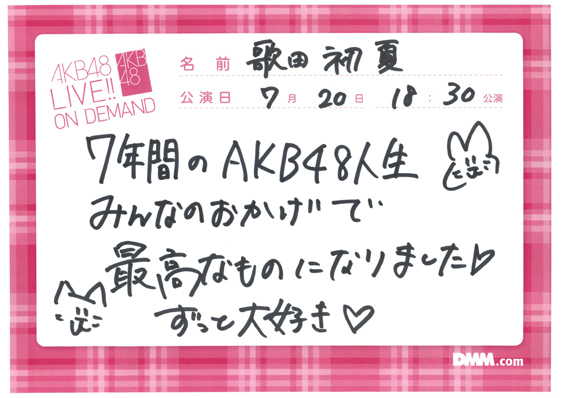 AKB48
LIVE!!
ON DEMAND
AKB
48
名前 歌田初夏
公演日 7月20日 18:30公演
7年間のAKB48人生
みんなのおかげで
最高なものになりました♡
ずっと大好き♡
DMM.com